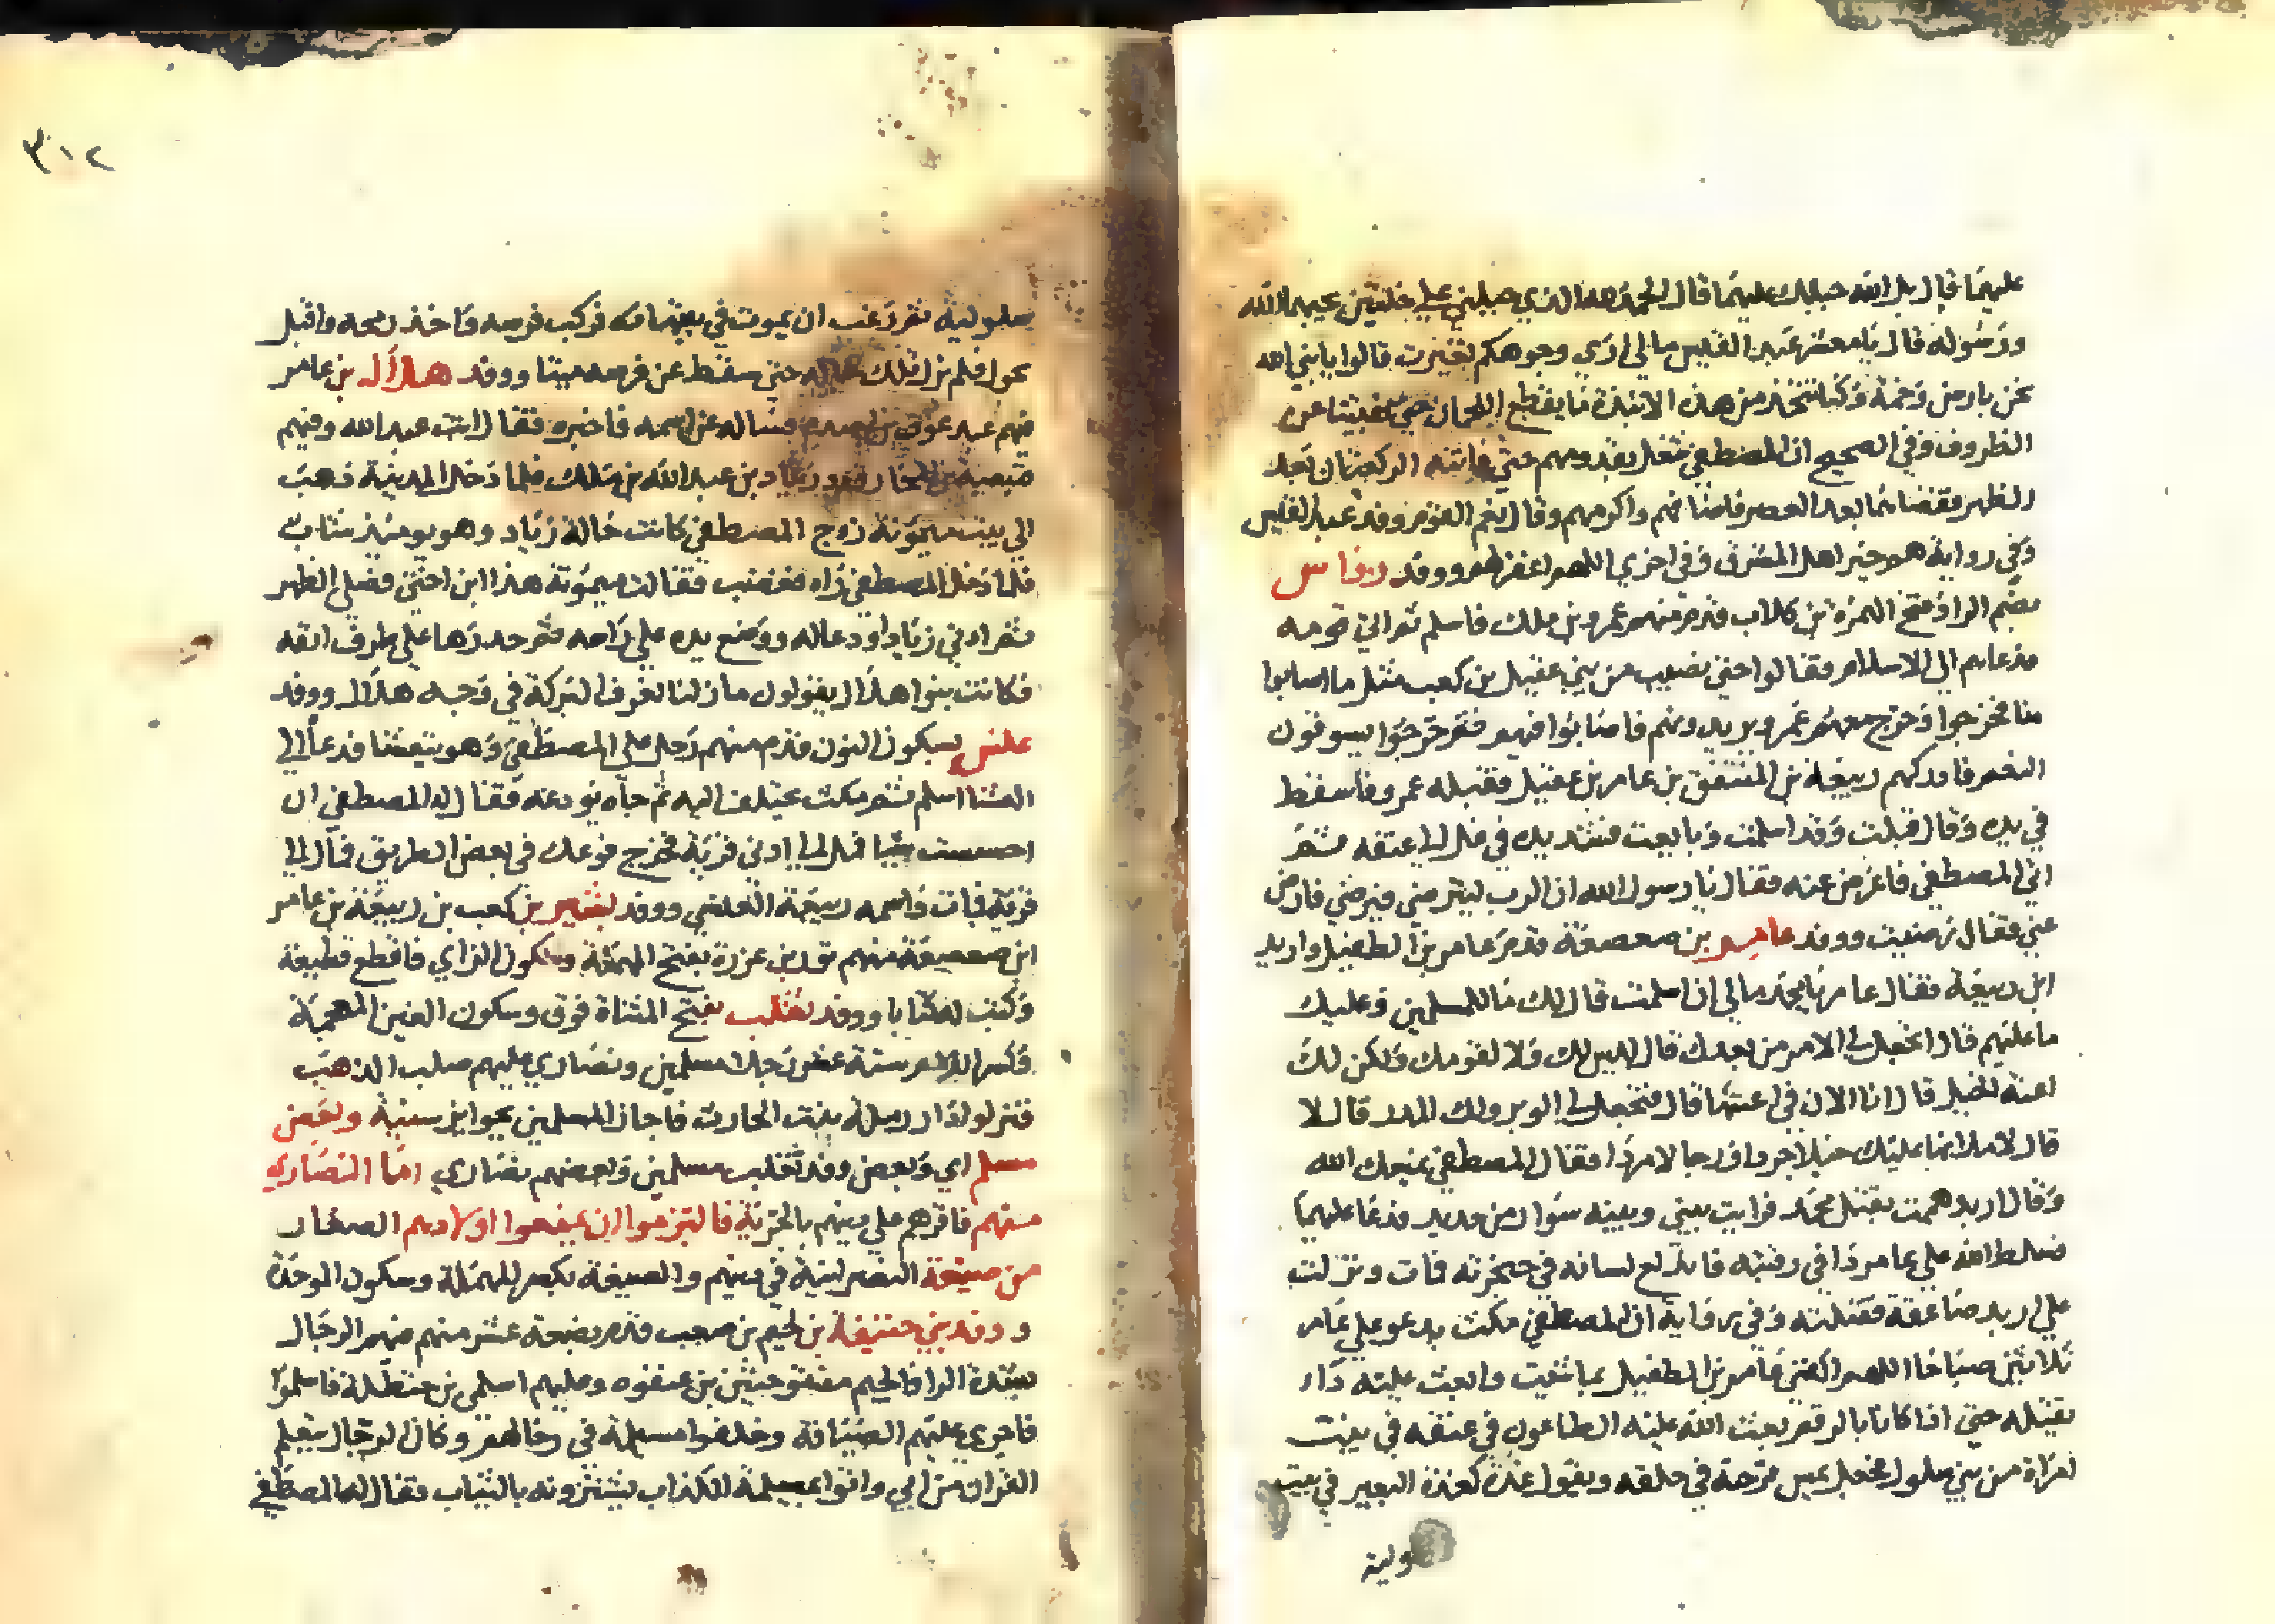 عليهما قال بل الله جبلك عليهما قال الحمد لله الذي جبلني علي خلتين يحبهما الله
ورسوله قال يا معشر عبد القيس ما لي اري وجوهكم تغيرت قالوا يا نبي الله
نحن بارض وخمة وكنا نتخذ من هذه الانبذة ما يقطع اللحمان في بطوننا عن
الظروف وفي الصحيح ان المصطفي شغل بقدومهم حتي فاتته الركعتان بعد
الظهر فقضاهما بعد العصر فاضافهم واكرمهم وقال نعم القوم وفد عبد القيس
وفي رواية هم خير اهل المشرق وفي اخري اللهم اغفر لهم ووفد رواس
بضم الرا وفتح الهمزة بن كلاب قدم منهم عمرو بن ملك فاسلم ثم اتي قومه
فدعاهم الي الاسلام فقالوا حتي نصيب من بني عقيل بن كعب مثل ما اصابوا
منا فخرجوا وخرج معهم عمرو يريدونهم فاصابوا فيهم ثم خرجوا يسوقون
النعم فادركهم ربيعة بن المنتفق بن عامر بن عقيل فقتله عمرو فاسقط
في يده وقال قتلت وقد اسلمت وبايعت فشد يده في غل الي عنقه ثم
اتي المصطفي فاعرض عنه فقال يا رسول الله ان الرب ليترضي فيرضي فارض
عني فقال رضيت ووفد عامر بن صعصعة قدم عامر بن الطفيل واربد
ابن ربيعة فقال عامر يا محمد ما لي ان اسلمت قال لك ما للمسلمين وعليك
ما عليهم قال اتجعل لي الامر من بعدك قال ليس لك ولا لقومك ولكن لك
اعنة الخيل قال انا الان في اعنتها قال فتجعل لي الوبر ولك المدر قال لا
قال لاملانها عليك خيلا جردا ورجالا مردا فقال المصطفي يمنعك الله
وقال اربد هممت بقتل محمد فرايت بيني وبينه سورا من حديد فدعا عليهما
فسلط الله علي عامر دا في رقبته فاندلع لسانه في حنجرته فمات ونزلت
علي اربد صاعقة فقتلته وفي رواية ان المصطفي مكث يدعو علي عامر
ثلاثين صباحا اللهم اكفني عامر بن الطفيل بما شئت وابعث عليه داء
يقتله حتي اذا كانا بالرقم بعث الله عليه الطاعون في عنقه في بيت
امراة من بني سلول فجعل يمس قرحة في حلقه ويقول غدة كغدة البعير في بيت
سلولية
٣١٢
سلولية ثم رغب ان يموت في بيتها فركب فرسه واخذ رمحه واقبل
يجول فلم يزل ذلك حاله حتي سقط عن فرسه ميتا ووفد هلال بن عامر
فيهم عبد عوف بن اصرم فساله عن اسمه فاخبره فقال انت عبد الله وفيهم
قبيصة بن المخارق وزياد بن عبد الله بن ملك فلما دخل المدينة ذهب
الي بيت ميمونة زوج المصطفي كانت خالة زياد وهو يومئذ شاب
فلما دخل المصطفي راه فغضب فقالت ميمونة هذا ابن اختي فصلي الظهر
ثم ادني زيادا ودعا له ووضع يده علي راسه ثم حدرها علي طرف انفه
فكانت بنوا هلال يقولون ما زلنا نعرف البركة في وجه هلال ووفد
عنس بسكون النون قدم منهم رجل علي المصطفي وهو يتعشا فدعا الي
العشا اسلم ثم مكث يختلف اليه ثم جاه يودعه فقال له المصطفي ان
احسست شيا فمل الي ادني قرية فخرج فوعك في بعض الطريق فمال الي
قرية فمات واسمه ربيعة العنسي ووفد قشير بن كعب بن ربيعة بن عامر
ابن صعصعة منهم ثور بن عزرة بفتح المهملة وسكون الزاي فاقطع قطيعة
وكتب له كتابا ووفد تغلب بفتح المثناة فوق وسكون الغين المعجمة
وكسر اللام ستة عشر رجلا مسلمين ونصاري عليهم صلب الذهب
فنزلوا دار رملة بنت الحارث فاجاز المسلمين بجوايز سنية وبعض
مسلم اي وبعض وفد تغلب مسلمين وبعضهم نصاري اما النصاري
منهم فاقرهم علي دينهم بالجزية فالتزموا ان يمنعوا اولادهم الصغار
من صبغة النصرانية في دينهم والصبغة بكسر المهملة وسكون الموحدة
و وفد بني حنيفة بن لجيم بن صعب قدم بضعة عشر منهم فيهم الرجال
بشدة الرا والجيم بن عنفوه وعليهم سلمي بن حنظلة فاسلموا
فاجري عليهم الضيافة وخلفوا مسيلمة في رحالهم وكان الرجال يتعلم
القران من ابي واتوا بمسيلمة الكذاب يسترونه بالثياب فقال له المصطفي